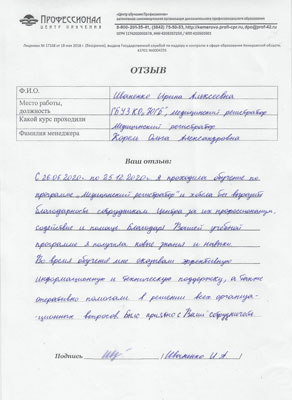 ПРОФЕССИОНАЛ
ЦЕНТР ОБУЧЕНИЯ
«Центр обучения «Профессионал»
8-800-201-35-41, (3842) 75-50-53, http://kemerovo.profi-cpr.ru, dpo@profi-42.ru
ОТЗЫВ
Ф.И.О. Иваненко Ирина Алексеевна
Место работы, должность ГБУЗ КО, Медицинский регистратор
Какой курс проходили Медицинский регистратор
Фамилия менеджера Ольга Александровна
Ваш отзыв:
С 26.06.2020г. по 25.12.2020г. Я проходила обучение по
программе „Медицинский регистратор" и хотела бы выразить
благодарность сотрудникам Центра за их профессионализм,
содействие и помощь. Благодаря Вашей учебной
программе я получила новые знания и навыки.
Во время обучения мне оказывали эффективную
информационную и техническую поддержку, а также
оперативно помогали в решении всех организа-
ционных вопросов. Было приятно с Вами сотрудничать.
Подпись / Иваненко И.А /